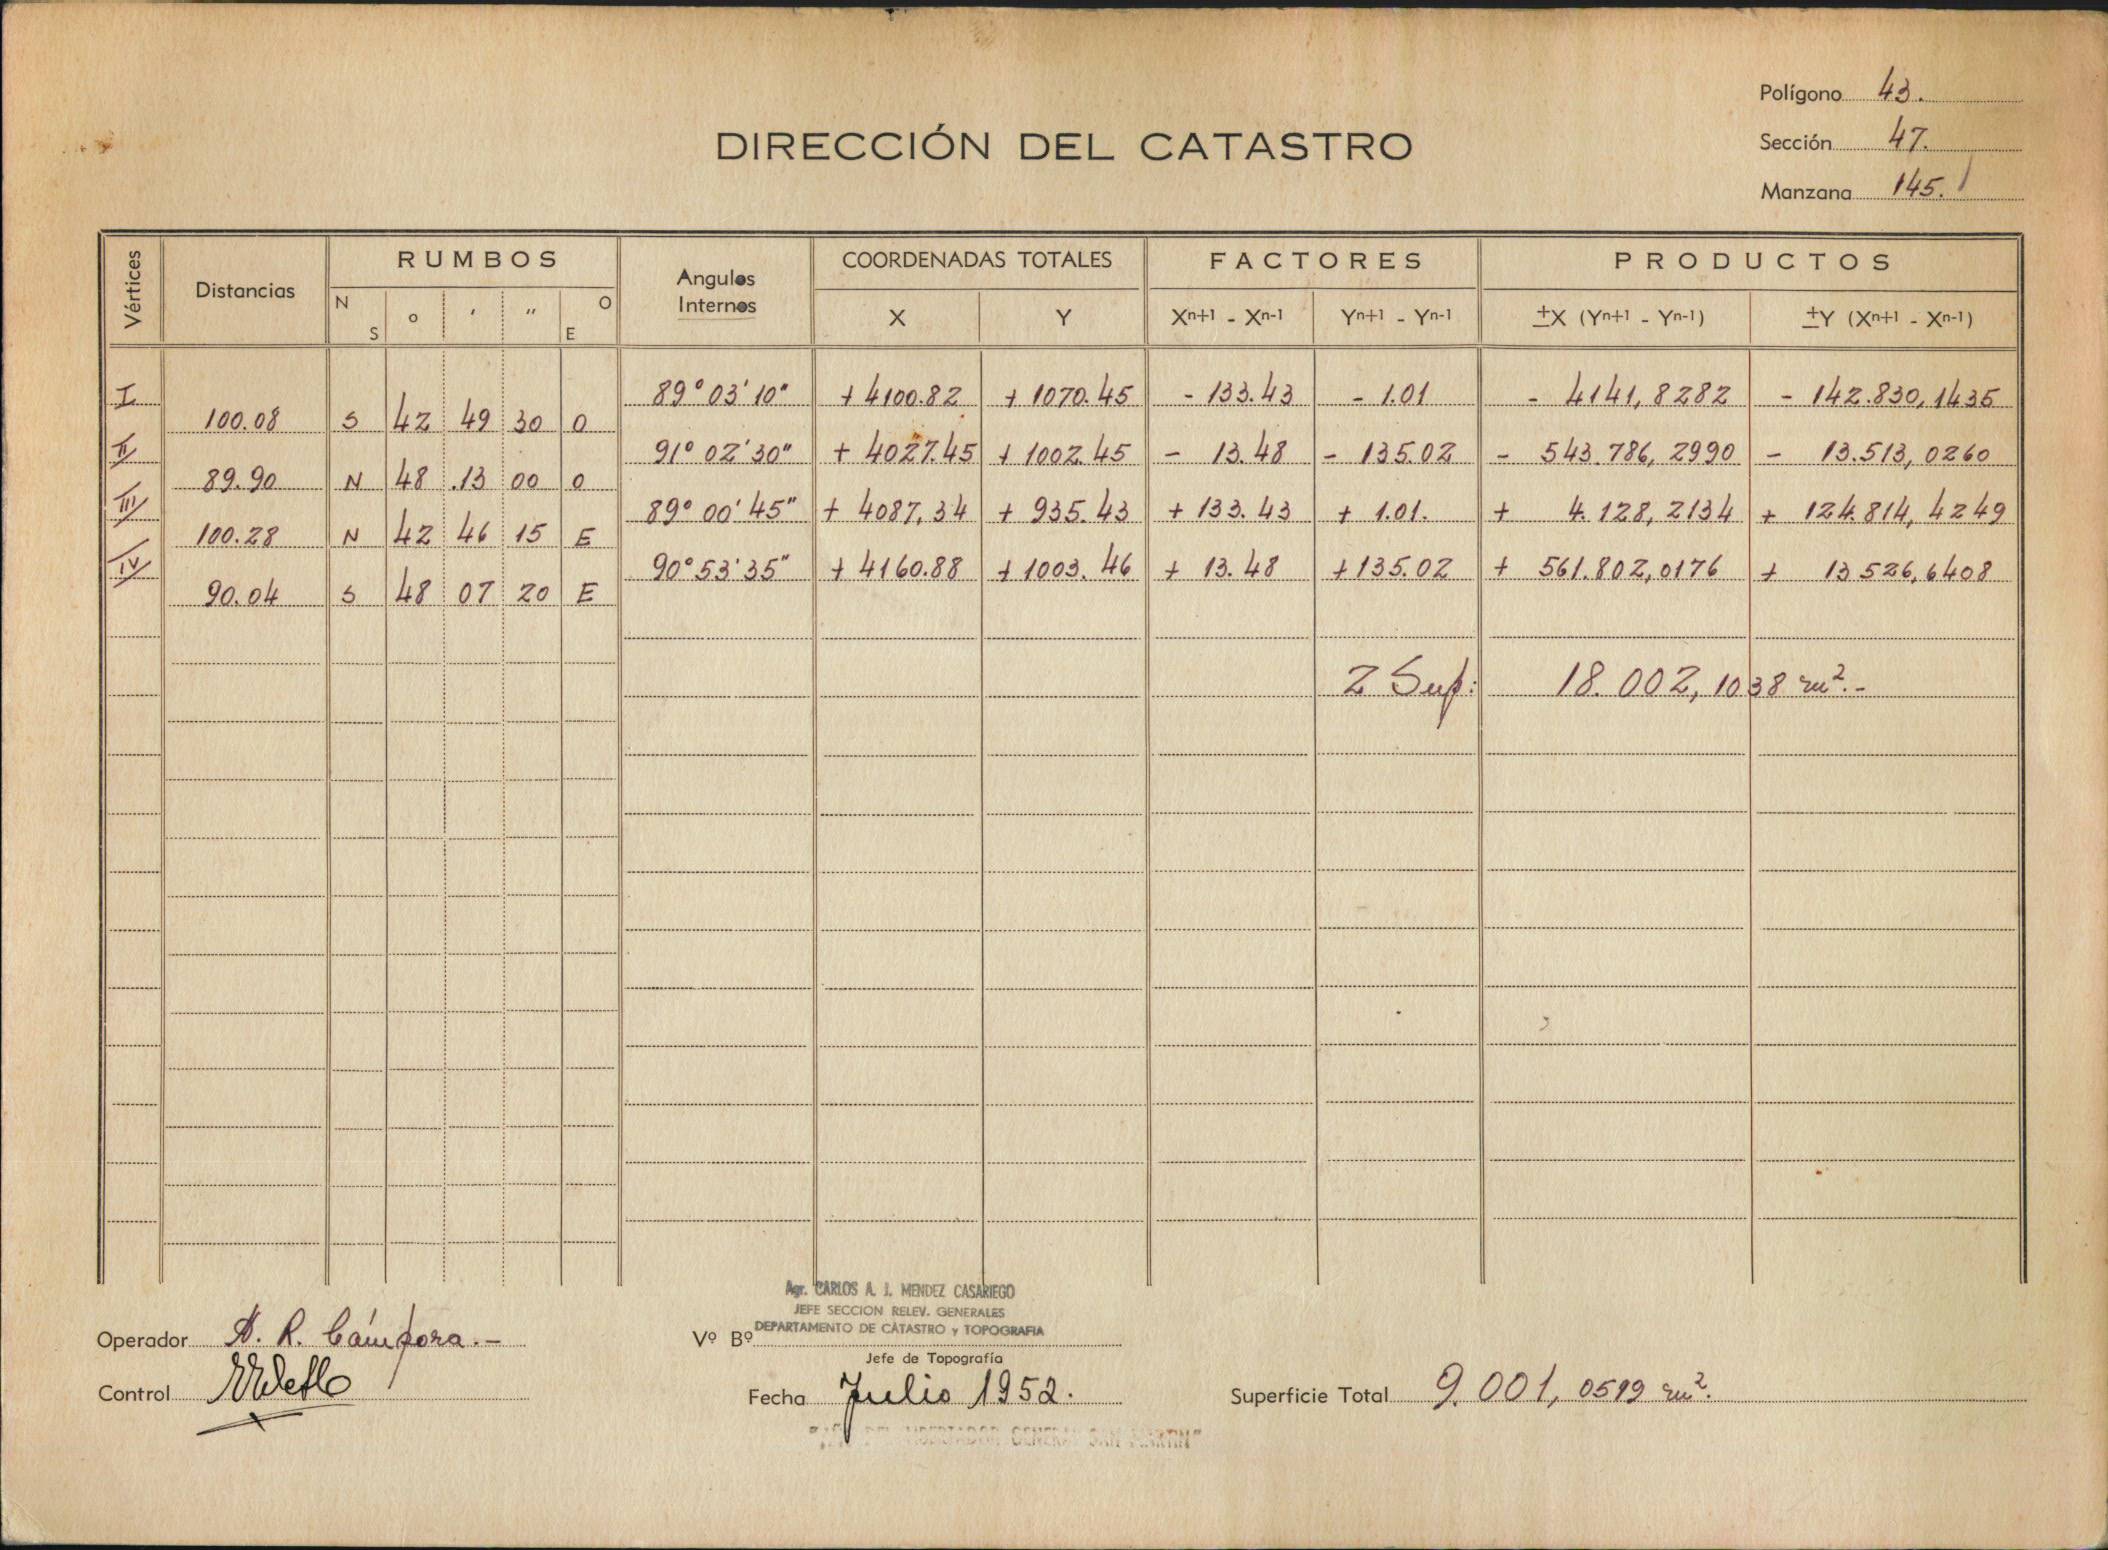 Polígono 43.
DIRECCIÓN DEL CATASTRO
Sección 47.
Manzana 145.
Vértices Distancias RUMBOS Angulos Internos COORDENADAS TOTALES FACTORES PRODUCTOS
N S o ' " O E X Y Xn+1 - Xn-1 Yn+1 - Yn-1 ±X (Yn+1 - Yn-1) ±Y (Xn+1 - Xn-1)
I 89° 03' 10" + 4100.82 + 1070.45 - 133.43 - 1.01 - 4141,8282 - 142.830,1435
100.08 S 42 49 30 O
II 91° 02' 30" + 4027.45 + 1002.45 - 13.48 - 135.02 - 543.786,2990 - 13.513,0260
89.90 N 48 13 00 O
III 89° 00' 45" + 4087,34 + 935.43 + 133.43 + 1.01. + 4.128,2134 + 124.814,4249
100.28 N 42 46 15 E
IV 90° 53' 35" + 4160.88 + 1003.46 + 13.48 + 135.02 + 561.802,0176 + 13526,6408
90.04 S 48 07 20 E
2 Sup: 18.002,1038 m².-
Agr. CARLOS A. J. MENDEZ CASARIEGO
JEFE SECCION RELEV. GENERALES
DEPARTAMENTO DE CATASTRO y TOPOGRAFIA
Operador A. R. Cámpora.- Vº Bº
Jefe de Topografía
Control Fecha Julio 1952. Superficie Total 9.001,0519 m².
DEL LIBERTADOR GENERAL SAN MARTIN"